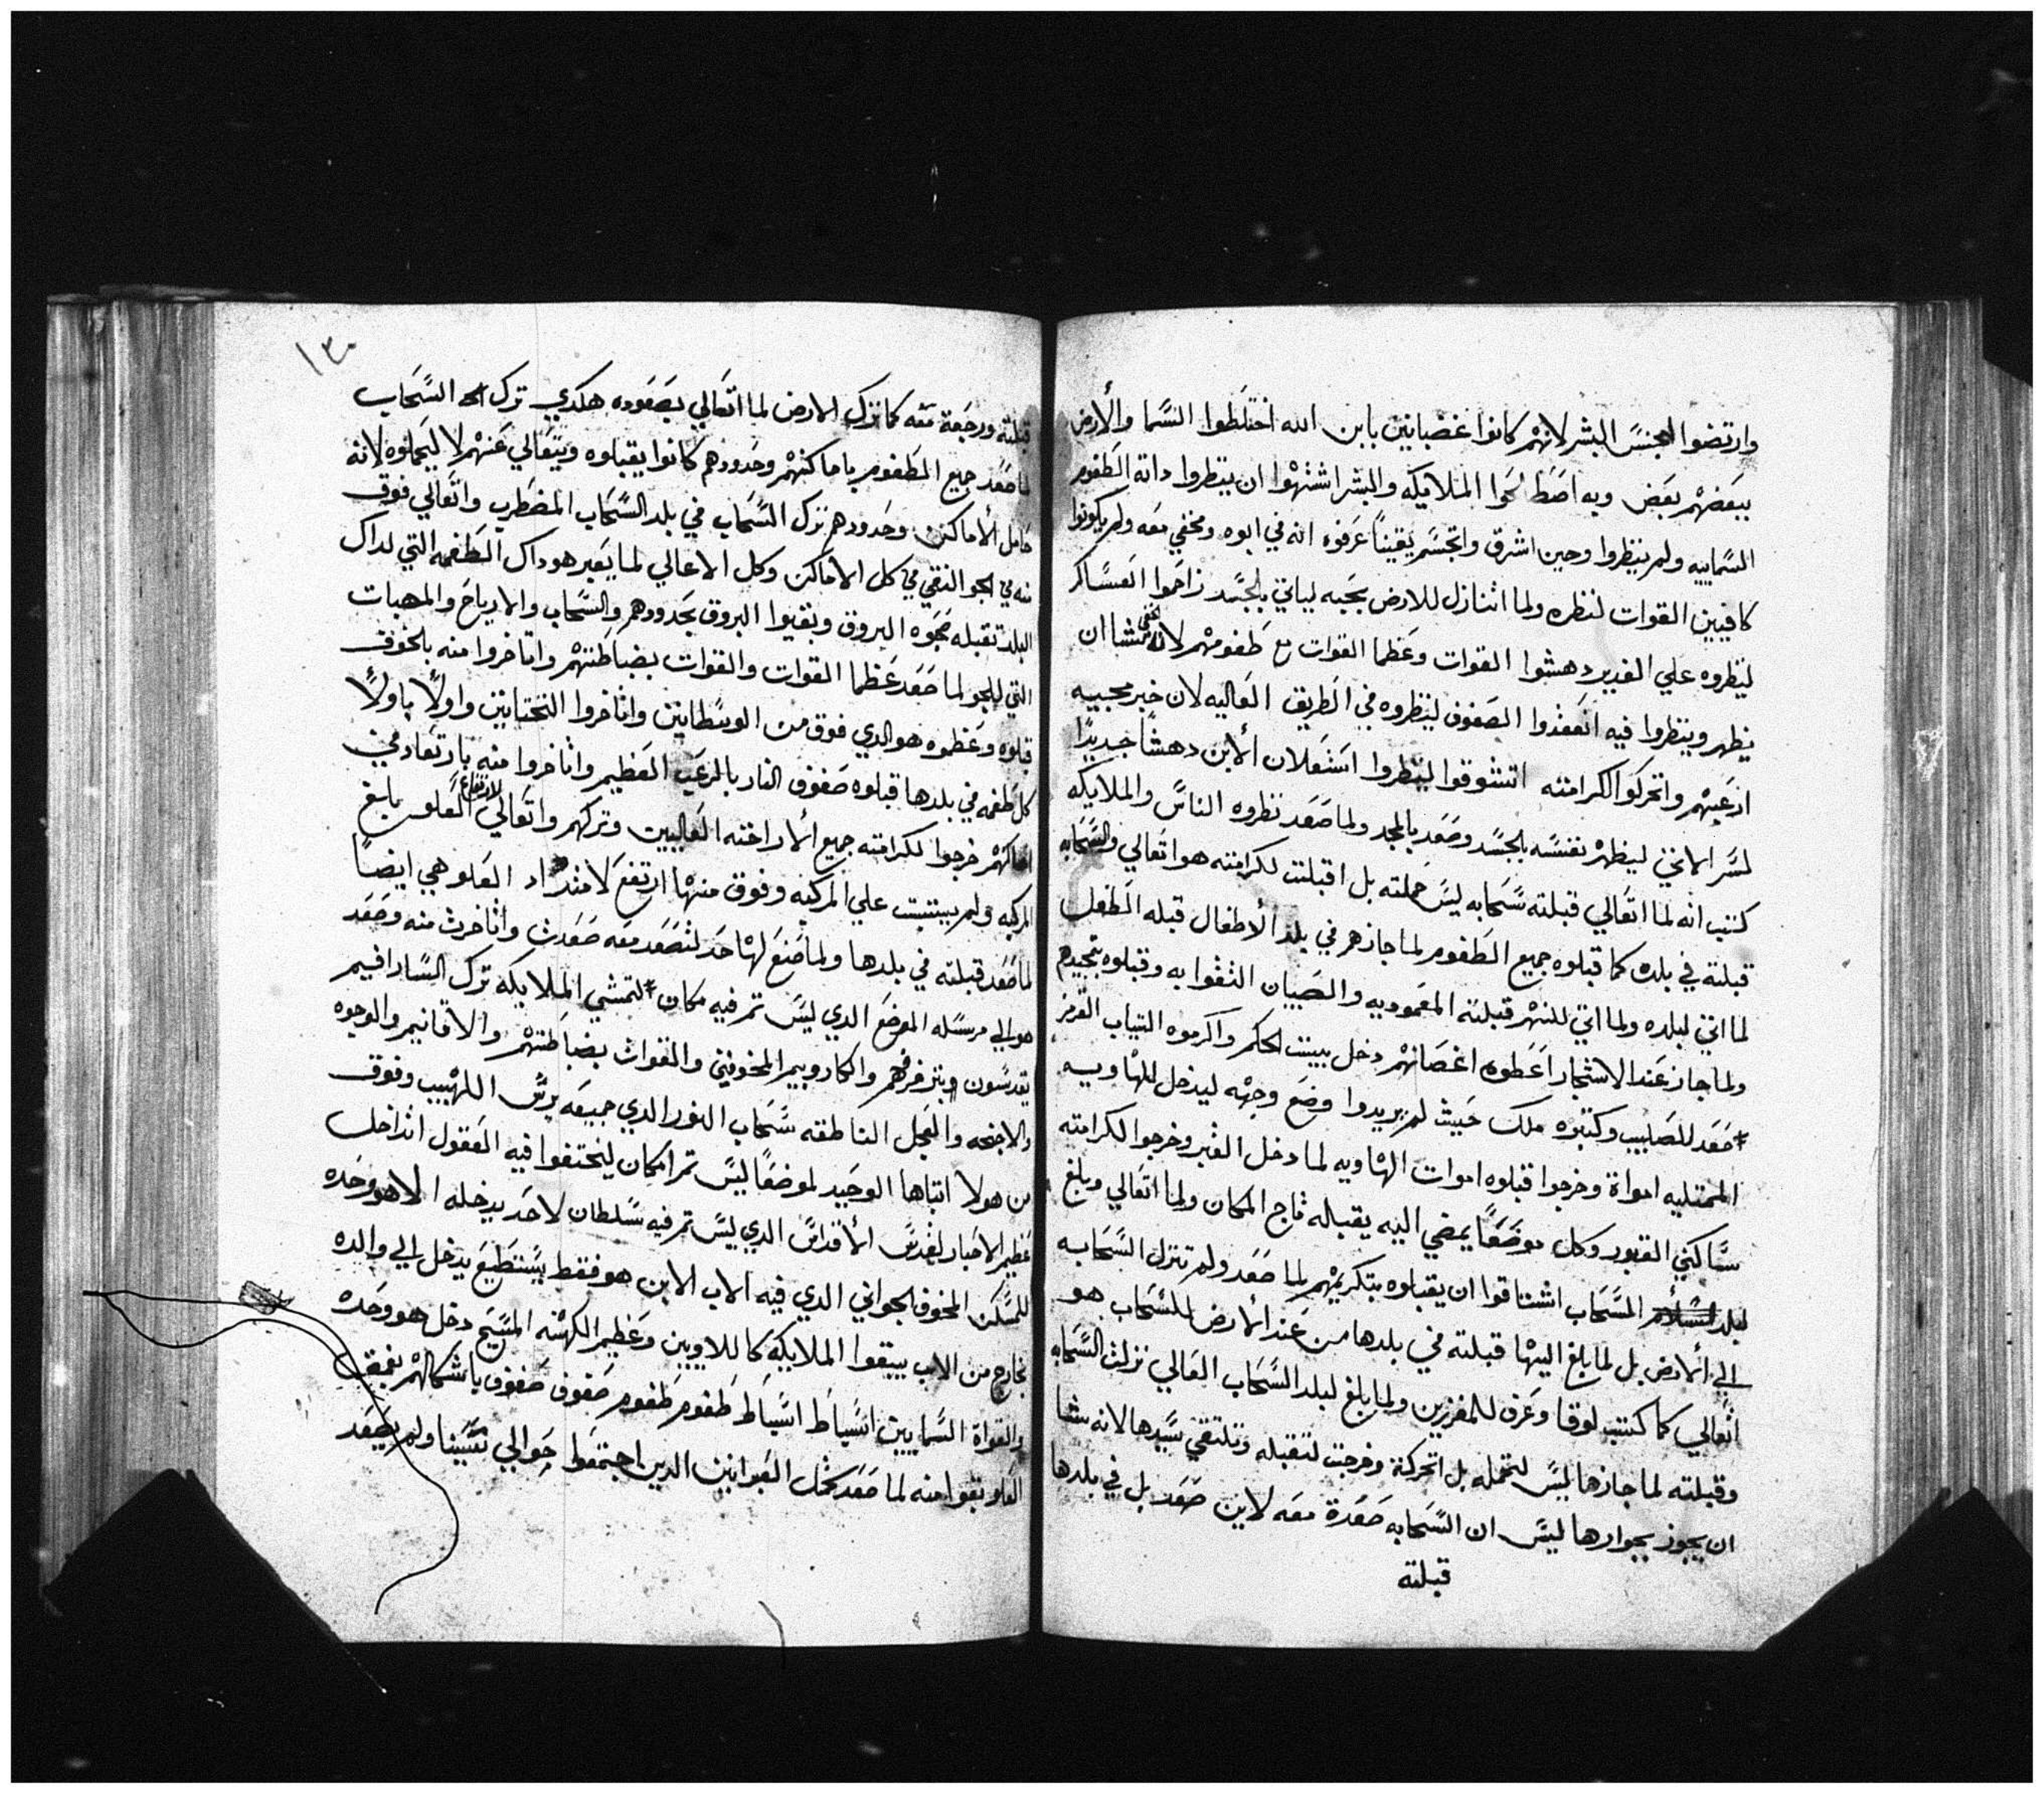 وارتضوا لجنس البشر لانهم كانوا غضبانين بابن الله اختلطوا السما والأرض
ببعضهم بعض وبه اصطلحوا الملايكه والبشر اشتهوا ان ينظروا داته الطغوم
السماييه ولم ينظروا وحين اشرق واتجسم يقيناً عرفوه انه في ابوه ومخفي معه ولم يكونوا
كافيين القوات لنظره ولما اتنازل للارض بحبه لياتي بالجسد زاحموا العساكر
لينظروه علي الغدير دهشوا القوات وعظما القوات مع طغومهم لانه شا ان
يظهر وينظروا فيه انعقدوا الصفوف لينظروه في الطريق العاليه لان خبر مجييه
ازعجهم واتحركوا لكرامته اتشوقوا لينظروا استعلان ألابن دهشاً جديداً
لسر الاتي ليظهر نفسه بالجسد وصعد بالمجد ولما صعد نظروه الناس والملايكه
كتب انه لما اتعالي قبلته سحابه ليس حملته بل اقبلت لكرامته هو اتعالي والسحابه
قبلته في بلده كما قبلوه جميع الطغوم لما جازهم في بلد الأطفال قبله الطفل
لما اتي لبلده ولما اتي للنهر قبلته المعموديه والصبيان التقوا به وقبلوه بتمجيدهم
ولما جاز عند الاشجار اعطوه اغصانهم دخل ببيت الحكم واكرموه التياب القرمز
صعد للصليب وكتبوه ملك حيث لم يريدوا وضع وجهه ليدخل للهاويه
الممتليه امواة وخرجوا قبلوه اموات الهاويه لما دخل القبر وخرجوا لكرامته
ساكني القبور وكل موضعاً يمضي اليه يقبله تاج المكان ولما اتعالي وبلغ
لبلد السحاب اشتاقوا ان يقبلوه بتكريمهم لما صعد ولم تنزل السحابه
الي ألارض بل لما بلغ اليها قبلته في بلدها من عند ألارض للسحاب هو
اتعالي كما كتب لوقا وعرف للمفرزين ولما بلغ لبلد السحاب العالي نزلت السحابه
وقبلته لما جازها ليس لتحمله بل اتحركة وخرجت لتقبله وتلتقي سيدها لانه شا
ان يجوز بجوارها ليس ان السحابه صعدة معه لاين صعد بل في بلدها
قبلته
١٣٠
قبلته ورجعة عنه كما ترك الارض لما اتعالي بصعوده هكدي ترك السحاب
لما صعد جميع الطغوم باماكنهم وحدودهم كانوا يقبلوه ويتعالي عنهم لا ليحملوه لانه
حامل ألاماكن وحدودهم ترك السحاب في بلد السحاب المضطرب واتعالي فوق
منه في الجو النقي في كل الأماكن وكل الاعالي لما يعبر هو داك الطغمه التي لداك
البلد تقبله البروق وبقيوا البروق بحدودهم والسحاب والارياح والمهبات
التي للجو لما صعد عظما القوات والقوات بضباطتهم واتاخروا منه بالخوف
قبلوه وعظموه هو الدي فوق من الوسطانين واتاخروا التحتانين واولاً باولاً
كل طغمه في بلدها قبلوه صفوف النار بالرعب العظيم واتاخروا منه بارتعاد في
اماكنهم خرجوا لكرامته جميع ألاراخنه العاليين وتركهم واتعالي لارتفاع العلو بلغ
المركبه ولم يتبتت علي المركبه وفوق منها ارتفع لامتداد العلو هي ايضاً
لما صعد قبلته في بلدها ولما صنع لها حد لتصعد معه صعدت واتاخرت منه وصعد
هو الي مرسله الموضع الدي ليس تم فيه مكان لتمشي الملايكه ترك السارافيم
يقدسون وبتزفرفهم والكاروبيم المخوفين والقوات بضباطتهم والاقانيم والوجوه
والاجنحه والعجل الناطقه سحاب النور الدي جميعه يرش اللهيب وفوق
من هولا اتباها الوحيد لموضعاً ليس تم امكان ليختفوا فيه العقول اتداخل
عظيم الاحبار لقدس ألاقداس الدي ليس تم فيه سلطان لاحد يدخله الا هو وحده
للمسكن المخوف الجواني الدي فيه الاب الابن هو فقط يستطيع يدخل الي والده
خارج من الاب يبقوا الملايكة كاللاويين وعظيم الكهنه المسيح دخل هو وحده
والقواة السماييين اتسياط اتسياط طغوم طغوم صفوف صفوف باشكالهم
العلو بقوا منه لما صعد كمتل العبرانين الدين اجتمعوا حوالي سينا ولم يصعد